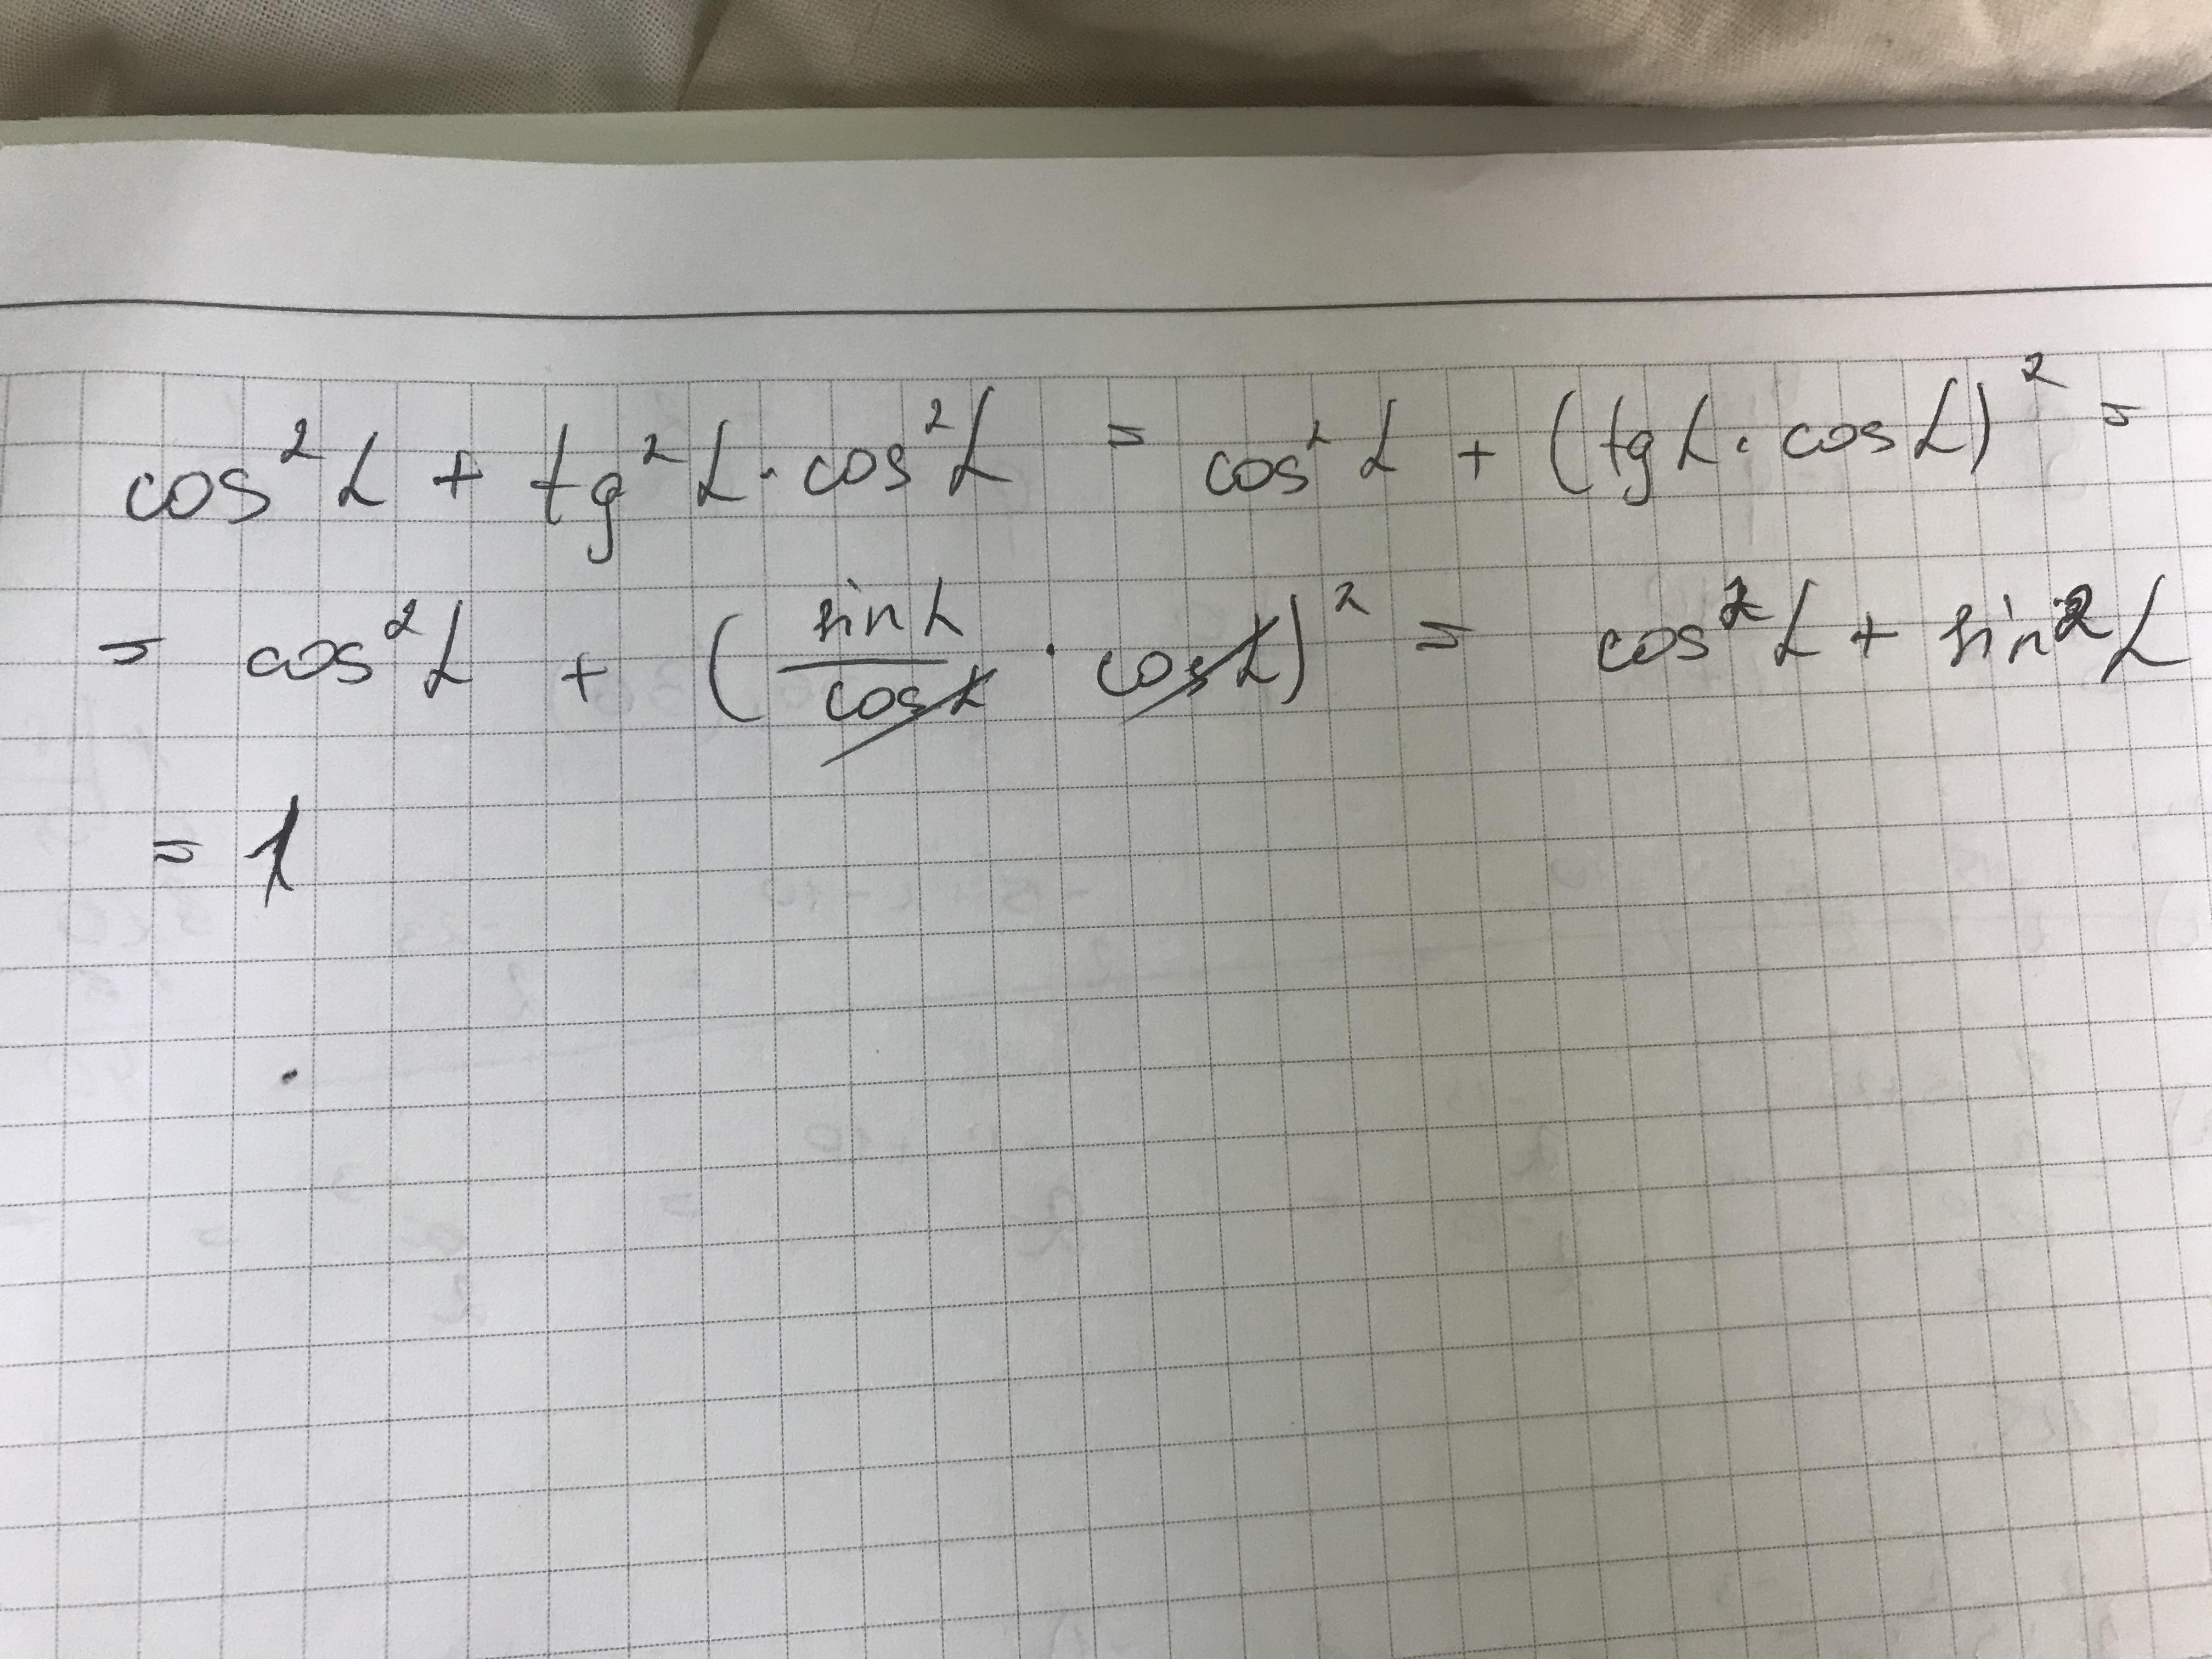 cos²α + tg²α · cos²α = cos²α + (tgα · cosα)² =
= cos²α + (sinα/cosα · cosα)² = cos²α + sin²α
= 1